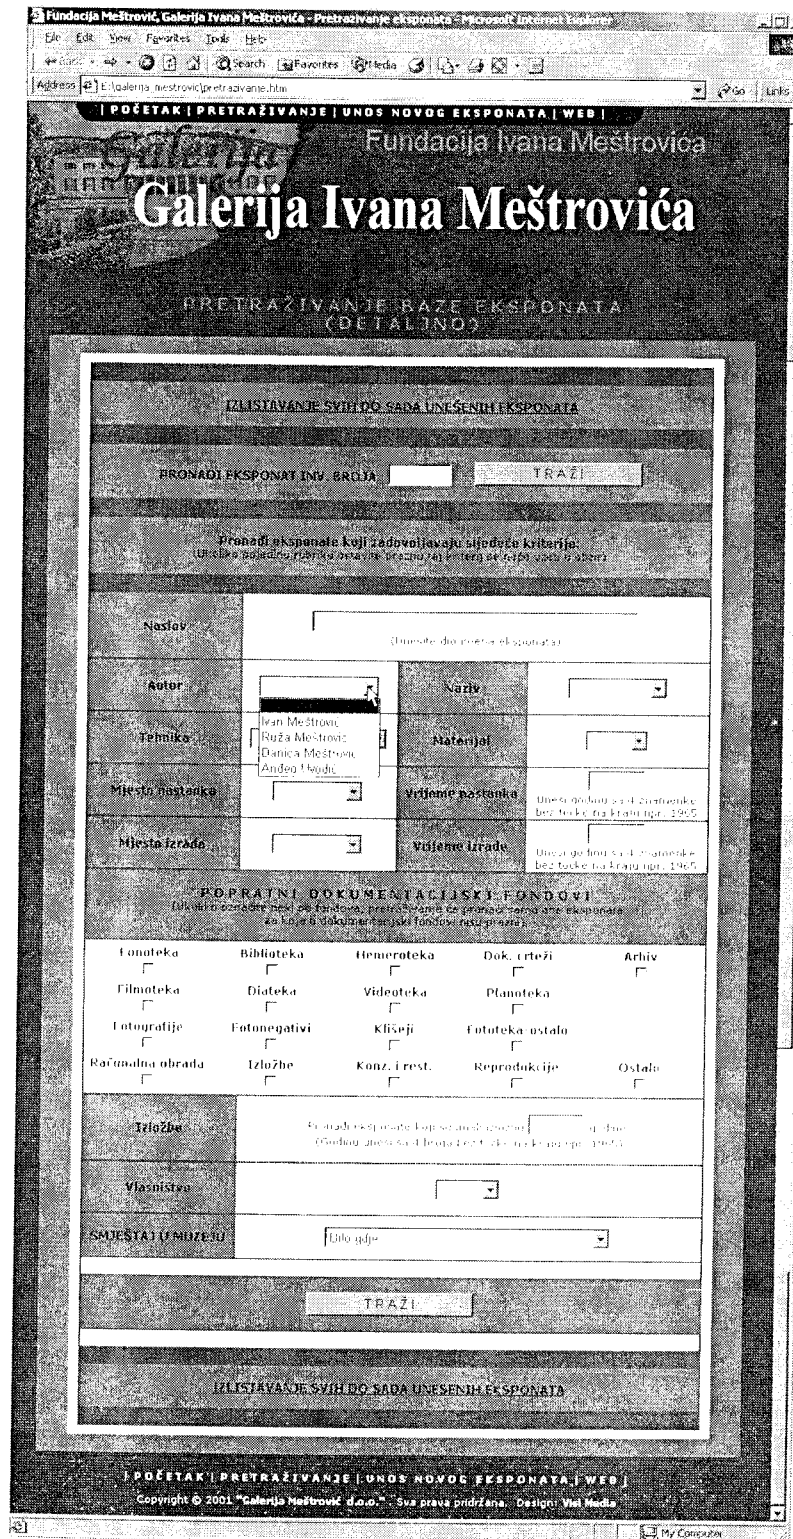 Fundacija Meštrović, Galerija Ivana Meštrovića - Pretrazivanje eksponata - Microsoft Internet Explorer
File Edit View Favorites Tools Help
Search Favorites Media
Address E:\galerija_mestrovic\pretrazivanje.htm Go Links
| POČETAK | PRETRAŽIVANJE | UNOS NOVOG EKSPONATA | WEB |
Galerija
Fundacija Ivana Meštrovića
Galerija Ivana Meštrovića
PRETRAŽIVANJE BAZE EKSPONATA
(DETALJNO)
IZLISTAVANJE SVIH DO SADA UNEŠENIH EKSPONATA
PRONAĐI EKSPONAT INV. BROJA TRAŽI
Pronađi eksponate koji zadovoljavaju sljedeće kriterije:
Naslov
(Unesite dio imena eksponata)
Autor Naziv
Ivan Meštrović
Ruža Meštrović
Danica Meštrović
Anđeo Uvodić
Tehnika Materijal
Mjesto nastanka Vrijeme nastanka
Unesi godinu sa 4 znamenke
bez točke na kraju npr. 1965
Mjesto izrade Vrijeme izrade
Unesi godinu sa 4 znamenke
bez točke na kraju npr. 1965
POPRATNI DOKUMENTACIJSKI FONDOVI
Fonoteka Biblioteka Hemeroteka Dok. crteži Arhiv
Filmoteka Diateka Videoteka Planoteka
Fotografije Fotonegativi Klišeji Fototeka-ostalo
Računalna obrada Izložbe Konz. i rest. Reprodukcije Ostalo
Izložbe
Vlasništvo
SMJEŠTAJ U MUZEJU Bilo gdje
TRAŽI
IZLISTAVANJE SVIH DO SADA UNESENIH EKSPONATA
| POČETAK | PRETRAŽIVANJE | UNOS NOVOG EKSPONATA | WEB |
Copyright © 2001 "Galerija Meštrović d.o.o." Sva prava pridržana. Design: Visi Media
My Computer